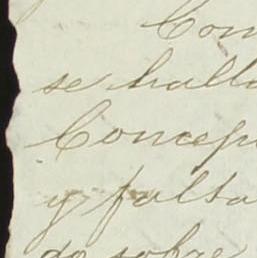 Com
se halla
Concep
y falta
do sobre